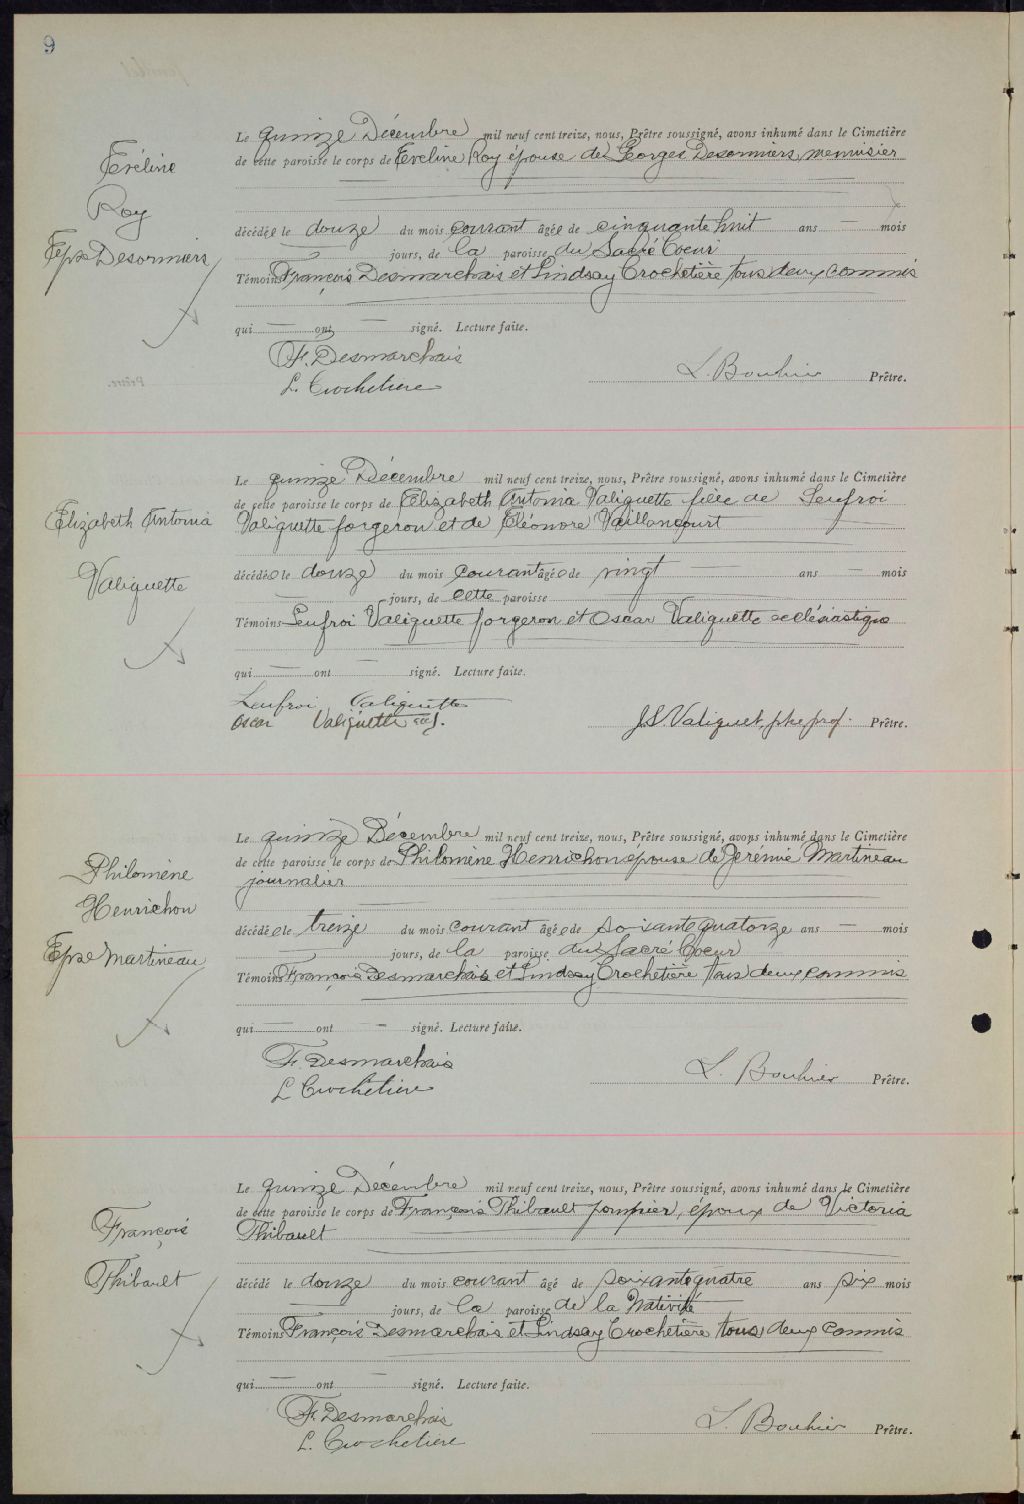 9
Le quinze Décembre mil neuf cent treize, nous, Prêtre soussigné, avons inhumé dans le Cimetière
Evéline
de cette paroisse le corps de Eveline Roy épouse de Georges Desormiers menuisier
Roy
décédée le douze du mois courant âgée de cinquante huit ans — mois
Epse Desormiers
— jours, de la paroisse du Sacré Coeur
Témoins François Desmarchais et Lindsay Crochetière tous deux commis
qui — ont — signé. Lecture faite.
F. Desmarchais
L. Bouhier Prêtre.
L. Crochetiere
Le quinze Décembre mil neuf cent treize, nous, Prêtre soussigné, avons inhumé dans le Cimetière
de cette paroisse le corps de Elizabeth Antonia Valiquette fille de Leufroi
Elizabeth Antonia
Valiquette forgeron et de Eléonore Vaillancourt
Valiquette
décédée le douze du mois courant âgée de vingt — ans — mois
— jours, de cette paroisse
Témoins Leufroi Valiquette forgeron et Oscar Valiquette ecclésiastique
qui — ont — signé. Lecture faite.
Leufroi Valiquette
Oscar Valiquette eccl.
J.S. Valiquet, ptre prof. Prêtre.
Le quinze Décembre mil neuf cent treize, nous, Prêtre soussigné, avons inhumé dans le Cimetière
Philomène
de cette paroisse le corps de Philomène Henrichon épouse de Jérémie Martineau
journalier
Henrichon
décédée le treize du mois courant âgée de soixante quatorze ans — mois
Epse Martineau
jours, de la paroisse du Sacré Coeur
Témoins François Desmarchais et Lindsay Crochetière tous deux commis
qui — ont — signé. Lecture faite.
F. Desmarchais
L. Bouhier Prêtre.
L Crochetiere
Le quinze Décembre mil neuf cent treize, nous, Prêtre soussigné, avons inhumé dans le Cimetière
de cette paroisse le corps de François Thibault pompier, époux de Victoria
François
Thibault
Thibault
décédé le douze du mois courant âgé de soixante quatre ans six mois
— jours, de la paroisse de la Nativité
Témoins François Desmarchais et Lindsay Crochetière tous deux commis
qui — ont — signé. Lecture faite.
F. Desmarchais
L. Bouhier Prêtre.
L. Crochetiere